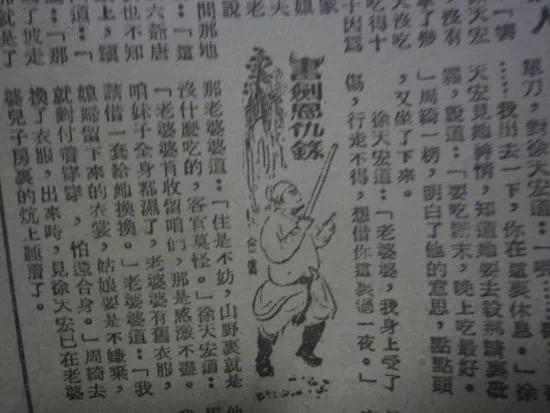 人
徐天宏
沒有
吃得十
子因為
家
媳
夫
老
說
單刀,對徐天宏道:「
……我出去一下,你在這裏休息。」徐
天宏見她神情,知道她要去殺那
霜,說道:「要吃 末,晚上吃最好。
」周綺一楞,明白了他的意思,點點頭
,又坐了下來。
徐天宏道:「老婆婆,我身上受了
傷,行走不得,想借你這裏過一夜。」
書劍恩仇錄
間那地
六爺唐
道:「這
也不知
上,鎮
道:「那
就是了
那老婆婆道:「住是不妨,山野裏就是
沒什麼吃的,客官莫怪。」徐天宏道:
「老婆婆肯收留咱們,那是感激不盡。
咱妹子全身都濕了,老婆婆有舊衣服,
請借一套給她換換。」老婆婆道:「我
媳婦留下來的衣裳,姑娘要是不嫌棄,
就對付着穿穿,怕還合身。」周綺去
換了衣服,出來時,見徐天宏已在老婆
婆兒子房裏的炕上睡着了。